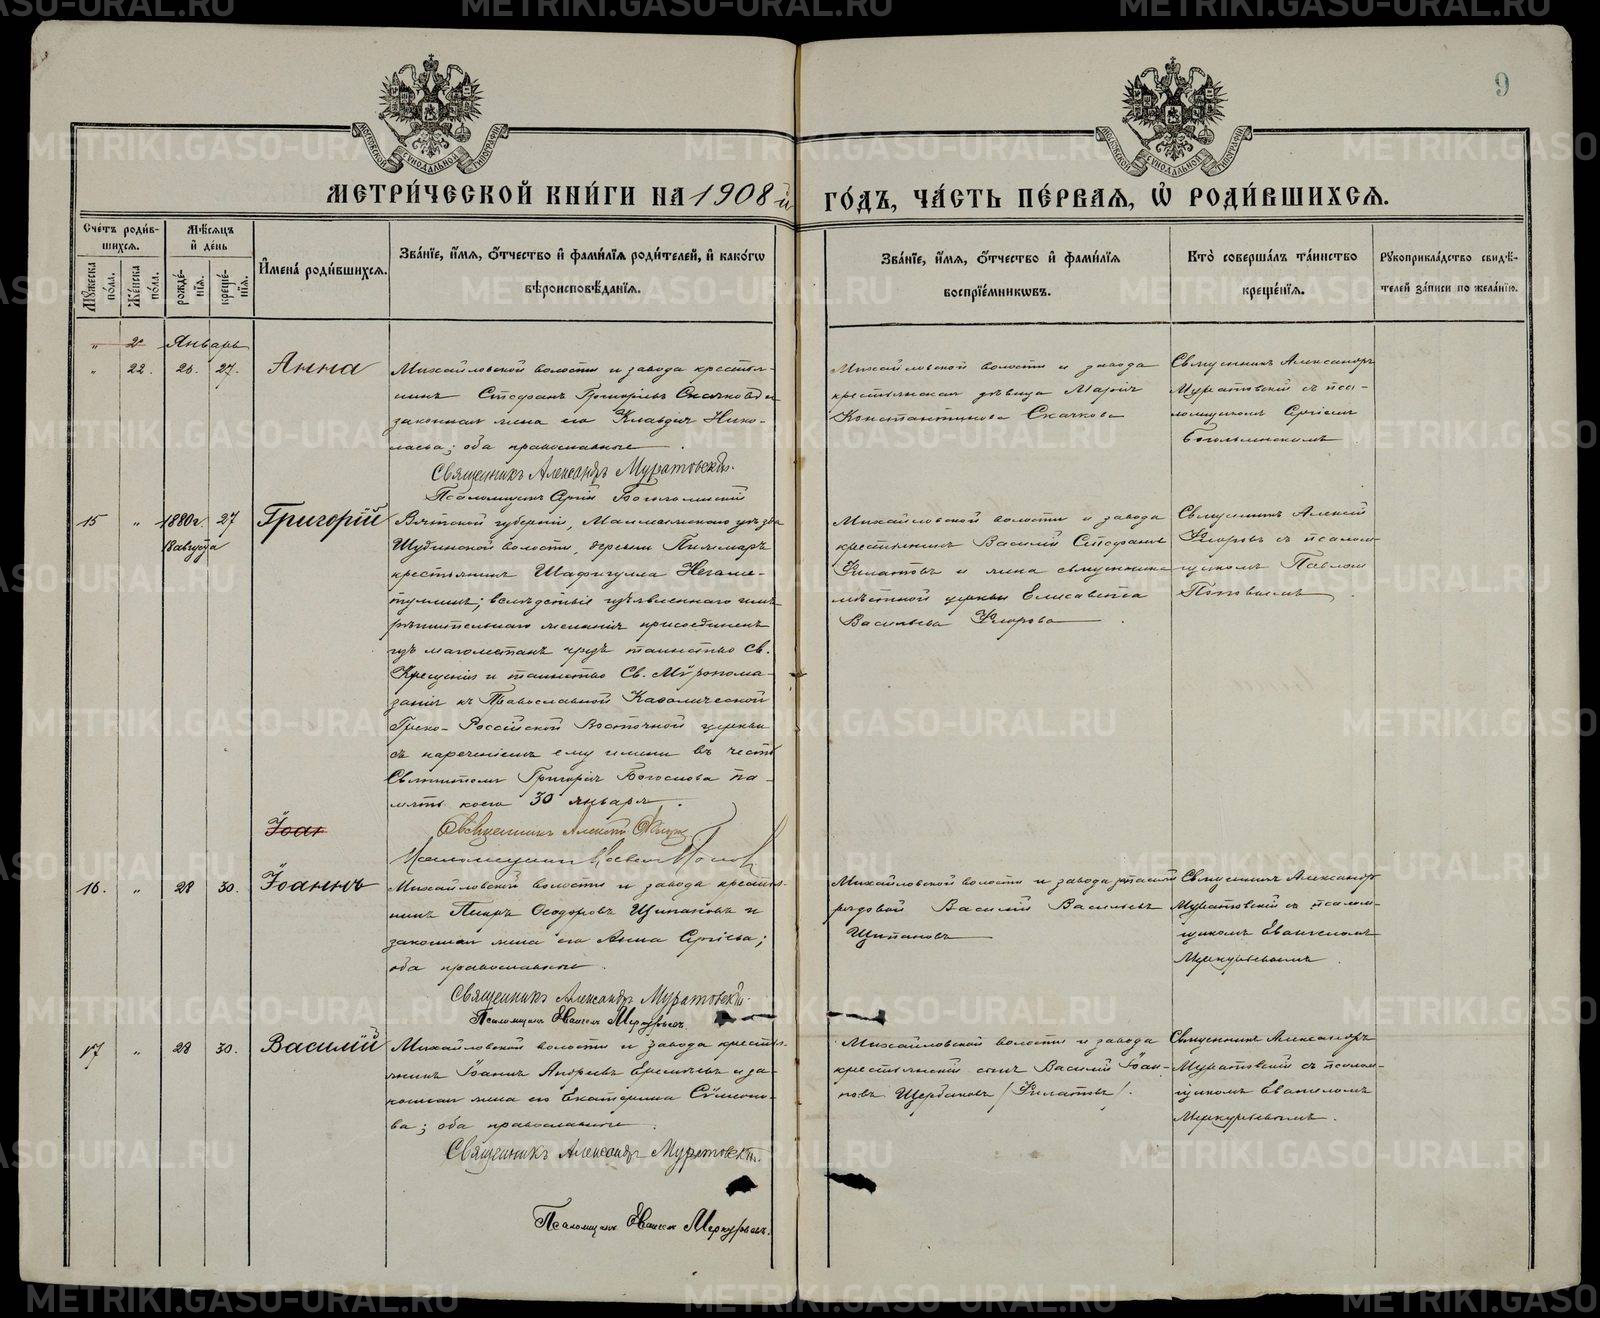 9
МОСКОВСКОЙ СѴНОДАЛЬНОЙ ТИПОГРАФІИ
МОСКОВСКОЙ СѴНОДАЛЬНОЙ ТИПОГРАФІИ
МЕТРИ́ЧЕСКОЙ КНИ́ГИ НА 1908-й ГО́ДЪ, ЧА́СТЬ ПЕ́РВАЯ, Ѡ҆ РОДИ́ВШИХСЯ.
Сче́тъ роди́в-
шихся.
Мѣ́сяцъ
и҆ де́нь
Мꙋ́жеска по́ла.
Же́нска по́ла.
рожде́-
нїѧ.
креще́-
нїѧ.
И҆мена̀ роди́вшихся.
Зва́нїе, и҆́мѧ, ѻ҆́тчество и҆ фами́лїѧ роди́телей, и҆ како́гѡ
вѣроисповѣ́данїѧ.
Зва́нїе, и҆́мѧ, ѻ҆́тчество и҆ фами́лїѧ
воспрїе́мникѡвъ.
Кто̀ соверша́лъ та́инство
креще́нїѧ.
Рꙋкоприкла́дство свидѣ́-
телей за́писи по жела́нїю.
" 2 Январь
" 22. 23. 27. Анна
Михайловской волости и завода крестья-
нинъ Стефанъ Григорьевъ Скачковъ и
законная жена его Клавдія Нико-
лаева; оба православные.
Священникъ Александръ Муратовскій.
Псаломщикъ Сергій Боголюбскій
Михайловской волости и завода
крестьянская дѣвица Марія
Константинова Скачкова
Священникъ Александръ
Муратовскій съ пса-
ломщикомъ Сергіемъ
15 " 1880г. 27 Григорій
18 августа
Вятской губерніи, Малмыжскаго уѣзда
Шудинской волости, деревни
крестьянинъ Шафигулла Негаме-
туллинъ; вслѣдствіе изъявленнаго имъ
рѣшительнаго желанія присоединенъ
изъ магометанъ чрезъ таинство Св.
Крещенія и таинство Св. Мѵропома-
занія къ Православной Каѳолической
Греко-Россійской Восточной церкви
съ нареченіемъ ему имени въ честь
Святителя Григорія Богослова па-
мять коего 30 января.
Священникъ Алексій Флоровъ
Псаломщикъ Павелъ Поповъ
Михайловской волости и завода
крестьянинъ Василій Стефановъ
Филатовъ и жена священника
мѣстной церкви Елисавета
Васильева Флорова.
Священникъ Алексій
Флоровъ съ псалом-
щикомъ Павломъ
Поповымъ
Іоан
16. " 28 30. Іоаннъ
Михайловской волости и завода крестья-
нинъ Петръ Ѳеодоровъ Щипановъ и
законная жена его Анна Сергіева;
оба православные.
Священникъ Александръ Муратовскій.
Псаломщикъ Евангелъ Меркурьевъ.
Михайловской волости и завода запасный
рядовой Василій Васильевъ
Щипановъ
Священникъ Александръ
Муратовскій съ псалом-
щикомъ Евангеломъ
Меркурьевымъ.
17 " 28 30. Василій
Михайловской волости и завода крестья-
нинъ Іоаннъ Андреевъ Еремѣевъ и за-
конная жена его Екатерина Сѵмеоно-
ва; оба православные.
Священникъ Александръ Муратовскій.
Псаломщикъ Евангелъ Меркурьевъ.
Михайловской волости и завода
крестьянскій сынъ Василій Іоан-
новъ Щербаковъ /Филатовъ/.
Священникъ Александръ
Муратовскій съ псалом-
щикомъ Евангеломъ
Меркурьевымъ.
METRIKI.GASO-URAL.RU